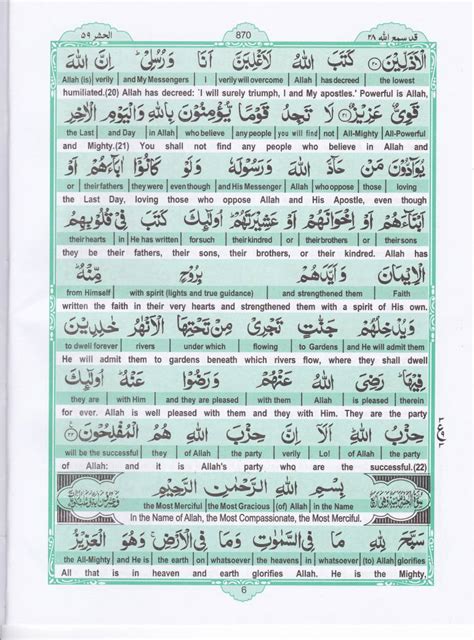 قد سمع الله ٢٨ 870 الحشر ٥٩
الْاَذَلِّيْنَ ﴿٢٠﴾ كَتَبَ اللّٰهُ لَاَغْلِبَنَّ اَنَا وَرُسُلِيْ ؕ اِنَّ اللّٰهَ
Allah (is) verily and My Messengers I verily will overcome Allah has decreed the lowest
humiliated.(20) Allah has decreed: 'I will surely triumph, I and My apostles.' Powerful is Allah,
قَوِيٌّ عَزِيْزٌ ﴿٢١﴾ لَا تَجِدُ قَوْمًا يُّؤْمِنُوْنَ بِاللّٰهِ وَالْيَوْمِ الْاٰخِرِ
the Last and Day in Allah who believe any people you will find not All-Mighty All-Powerful
and Mighty.(21) You shall not find any people who believe in Allah and
يُوَآدُّوْنَ مَنْ حَآدَّ اللّٰهَ وَرَسُوْلَهٗ وَلَوْ كَانُوْۤا اٰبَآءَهُمْ اَوْ
or their fathers they were even though and His Messenger Allah who oppose those loving
the Last Day, loving those who oppose Allah and His Apostle, even though
اَبْنَآءَهُمْ اَوْ اِخْوَانَهُمْ اَوْ عَشِيْرَتَهُمْ ؕ اُولٰٓئِكَ كَتَبَ فِيْ قُلُوْبِهِمُ
their hearts in He has written for such their kindred or their brothers or their sons
they be their fathers, their sons, their brothers, or their kindred. Allah has
الْاِيْمَانَ وَاَيَّدَهُمْ بِرُوْحٍ مِّنْهُ ؕ
from Himself with spirit (lights and true guidance) and strengthened them Faith
written the faith in their very hearts and strengthened them with a spirit of His own.
وَيُدْخِلُهُمْ جَنّٰتٍ تَجْرِيْ مِنْ تَحْتِهَا الْاَنْهٰرُ خٰلِدِيْنَ
to dwell forever rivers under which flowing to Gardens and He will admit them
He will admit them to gardens beneath which rivers flow, where they shall dwell
فِيْهَا ؕ رَضِيَ اللّٰهُ عَنْهُمْ وَرَضُوْا عَنْهُ ؕ اُولٰٓئِكَ
they are with Him and they are pleased with them Allah is pleased therein
for ever. Allah is well pleased with them and they with Him. They are the party
حِزْبُ اللّٰهِ ؕ اَلَاۤ اِنَّ حِزْبَ اللّٰهِ هُمُ الْمُفْلِحُوْنَ ﴿٢٢﴾
will be the successful they of Allah the party verily Lo! of Allah the party
of Allah: and it is Allah's party who are the successful.(22)
بِسْمِ اللّٰهِ الرَّحْمٰنِ الرَّحِيْمِ
the Most Merciful the Most Gracious (of) Allah in the Name
In the Name of Allah, the Most Compassionate, the Most Merciful.
سَبَّحَ لِلّٰهِ مَا فِي السَّمٰوٰتِ وَمَا فِي الْاَرْضِ ۚ وَهُوَ الْعَزِيْزُ
the All-Mighty and He is the earth on whatsoever the heavens in whatsoever Allah glorifies
All that is in heaven and earth glorifies Allah. He is the Mighty,
6